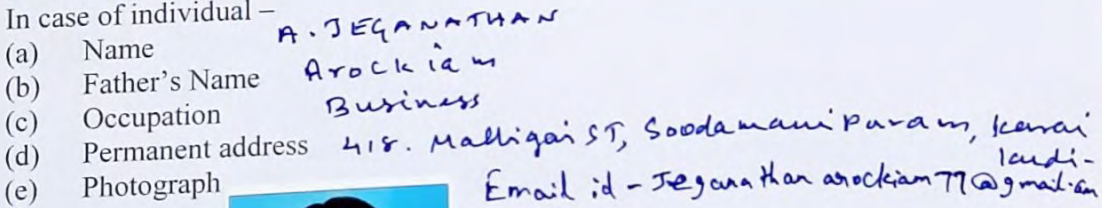 In case of individual –
(a) Name A. JEGANATHAN
(b) Father's Name Arockiam
(c) Occupation Business
(d) Permanent address 418. Malligai ST, Soodamanipuram, Karai
kudi-
(e) Photograph Email id - Jeganathanarockiam77@gmail.com